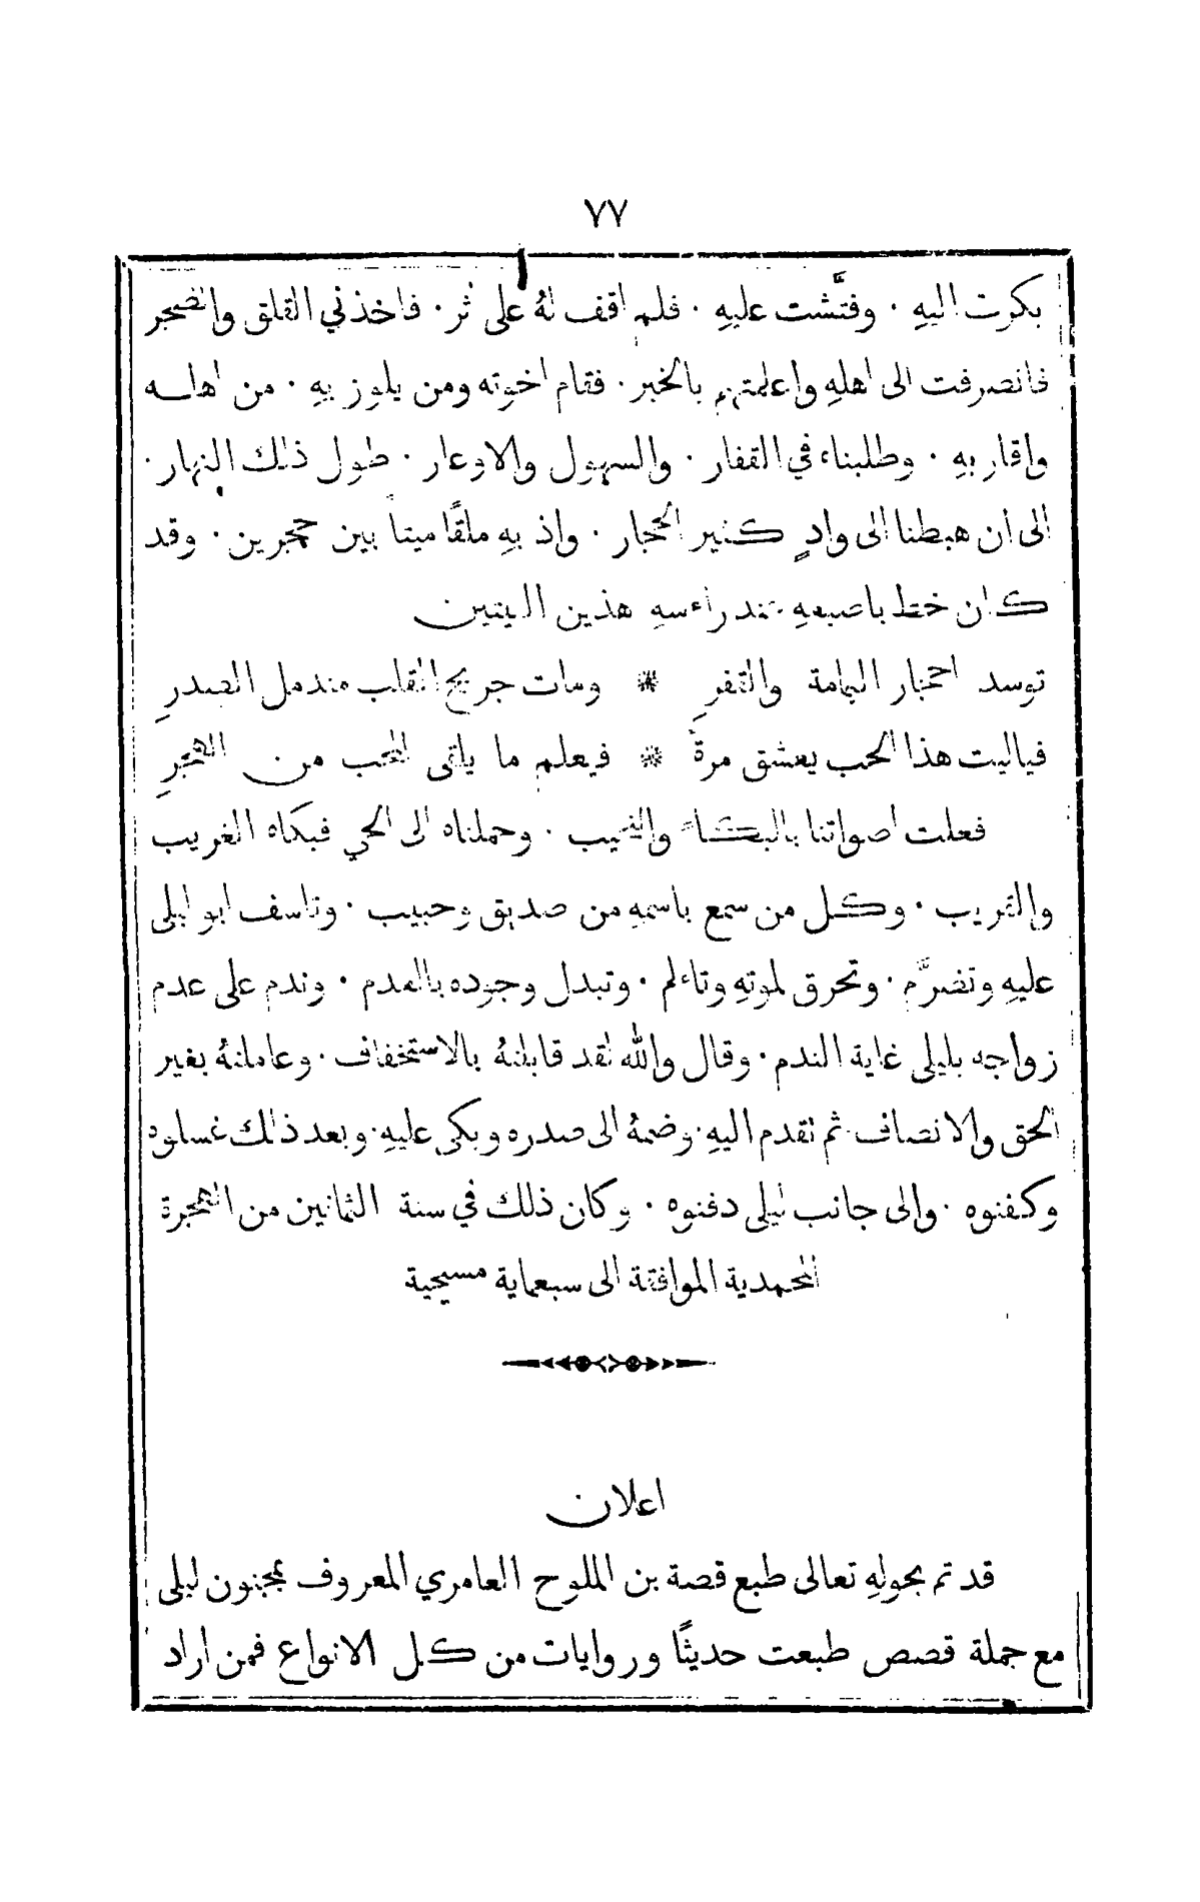 ٧٧
بكرت اليهِ ٠ وفتَّشت عليهِ ٠ فلم اقف لهُ على اثر ٠ فاخذني القلق والضجر
فانصرفت الى اهلهِ واعلمتهم بالخبر ٠ فقام اخوته ومن يلوز بهِ ٠ من اهلـــه
واقاربهِ ٠ وطلبناء في القفار ٠ والسهول والاوعار ٠ طول ذلك النهار ٠
الى ان هبطنا الى وادٍ كثير الحجار ٠ واذ بهِ ملقًا ميتا بين حجرين ٠ وقد
كان خط باصبعهِ عند راءسهِ هذين البيتين
توسد احجار اليمامة والقفرِ * ومات جريح القلب مندمل الصدرِ
فياليت هذا الحب يعشق مرةً * فيعلم ما يلقى المحب من الهجرِ
فعلت اصواتنا بالبكاء والنحيب ٠ وحملناه الى الحي فبكاه الغريب
والقريب ٠ وكل من سمع باسمهِ من صديق وحبيب ٠ وتاسف ابو ليلى
عليهِ وتضرَّم ٠ وتحرق لموتهِ وتاءلم ٠ وتبدل وجوده بالعدم ٠ وندم على عدم
زواجه بليلى غاية الندم ٠ وقال والله لقد قابلتهُ بالاستخفاف ٠ وعاملتهُ بغير
الحق والانصاف ٠ ثم تقدم اليهِ ٠ وضمهُ الى صدره وبكى عليهِ ٠ وبعد ذلك غسلوه
وكفنوه ٠ والى جانب ليلى دفنوه ٠ وكان ذلك في سنة الثمانين من الهجرة
المحمدية الموافقة الى سبعماية مسيحية
اعلان
قد تم بحولهِ تعالى طبع قصة بن الملوح العامري المعروف بمجنون ليلى
مع جملة قصص طبعت حديثًا وروايات من كل الانواع فمن اراد